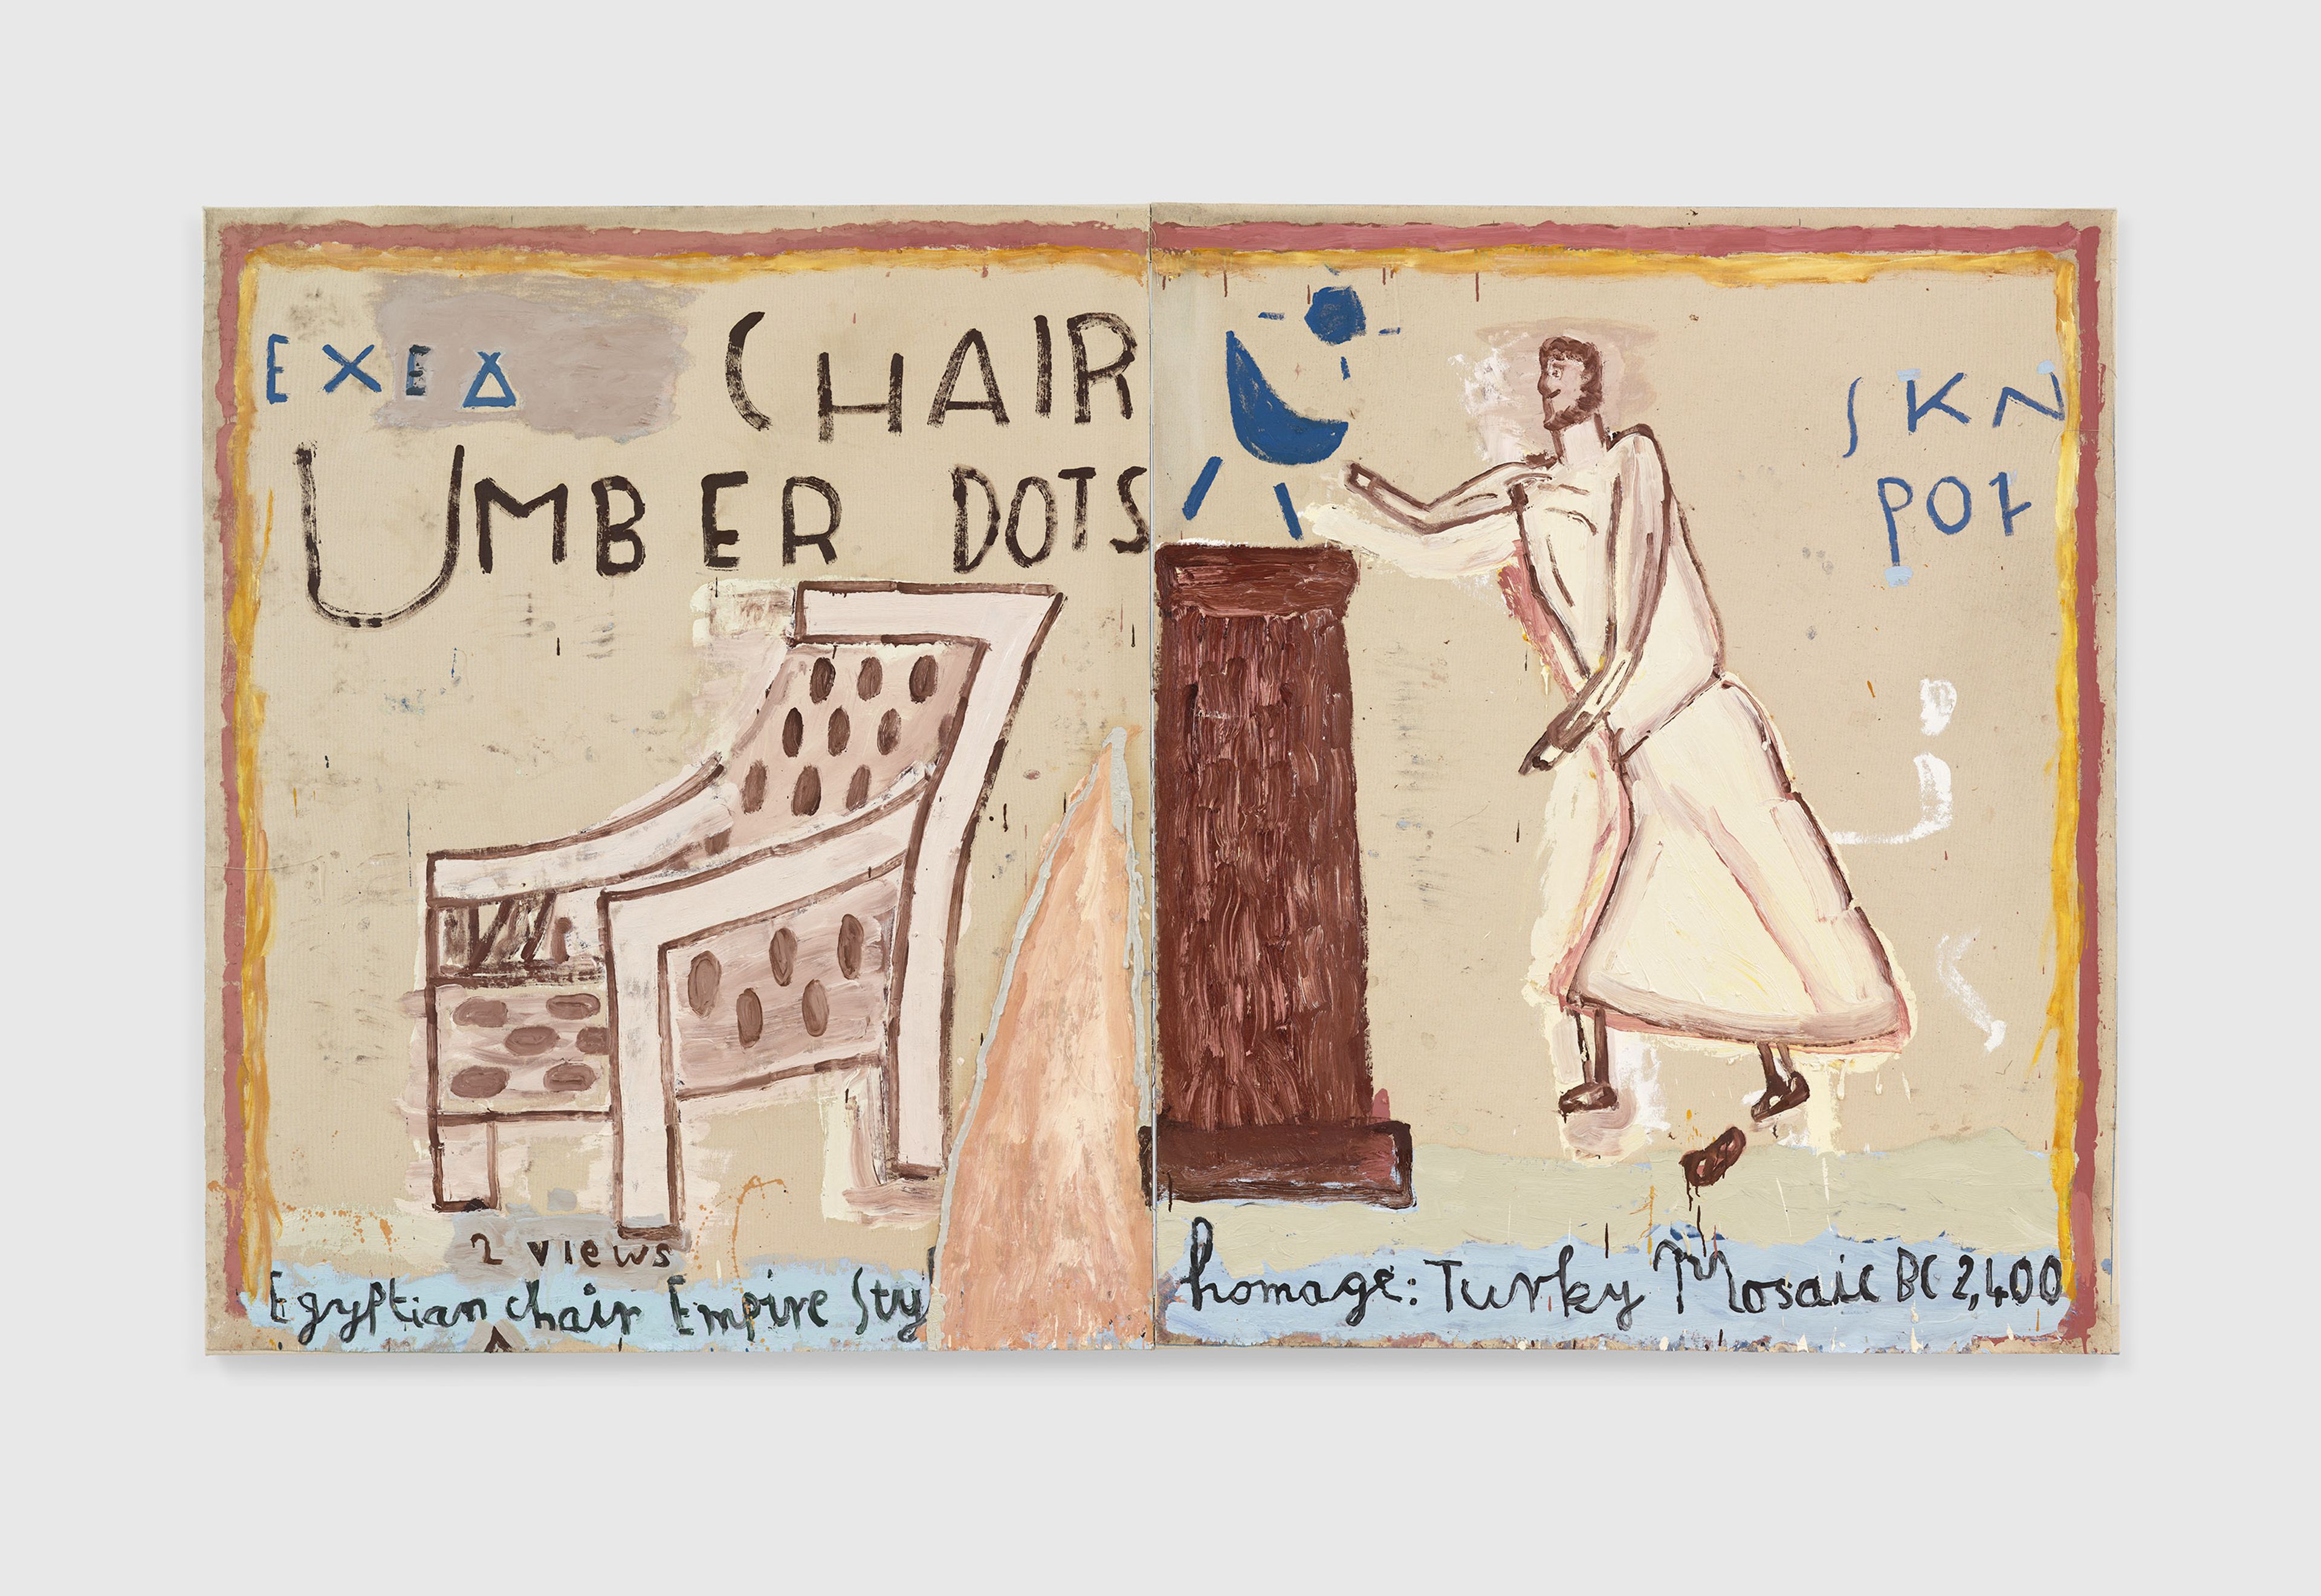 EXEΔ CHAIR
UMBER DOTS
2 views
Egyptian chair Empire Sty
SKN
POT
homage: Turky Mosaic BC 2,400